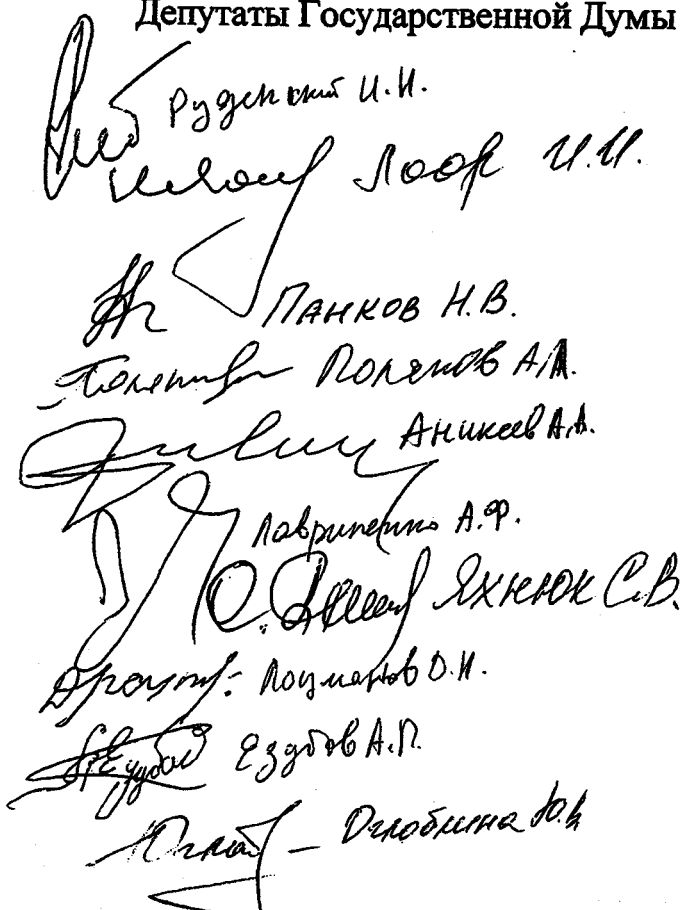 Депутаты Государственной Думы
Руденский И.Н.
Лоор И.И.
Панков Н.В.
Поляков А.А.
Аникеев А.А.
Лавриненко А.Ф.
Яхнюк С.В.
Лоцманов Д.Н.
Ездубов А.П.
Оглоблина Ю.В.